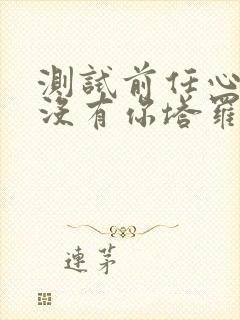 測試前任心
沒有你塔羅
連茅